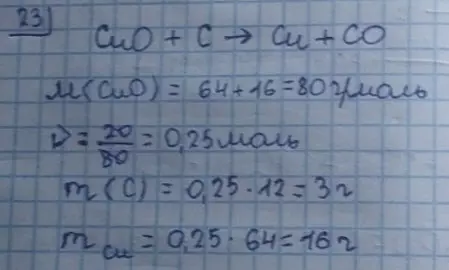 23)
CuO + C → Cu + CO
M(CuO) = 64+16=80 г/моль
ν = 20/80 = 0,25 моль
m(C) = 0,25 · 12 = 3 г
m Cu = 0,25 · 64 = 16 г